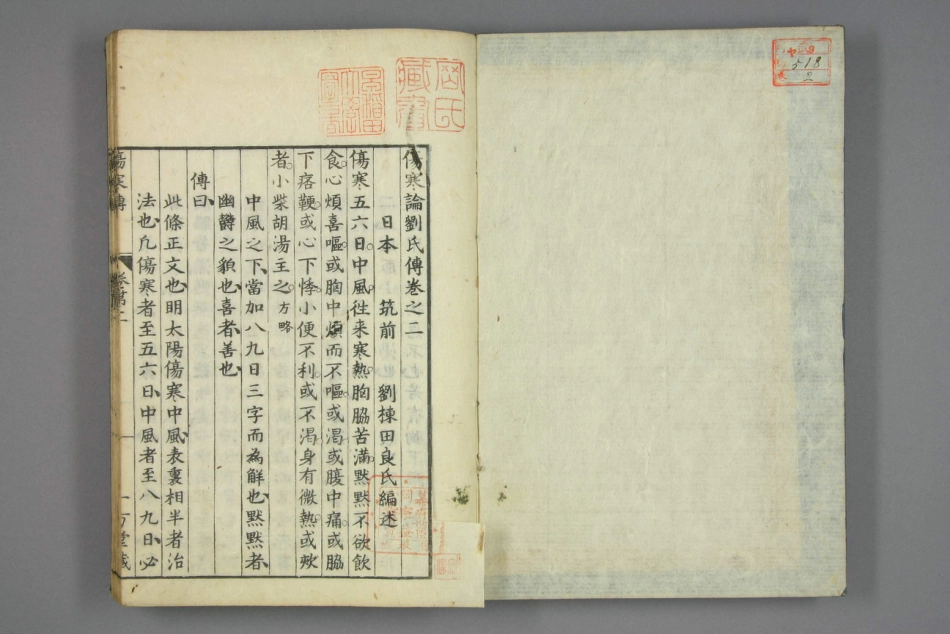 傷寒論劉氏傳卷之二
日本 筑前 劉棟田良氏編述
傷寒五六日。中風。徃来寒熱。胸脇苦滿。黙黙不欲飲
食。心煩喜嘔。或胸中煩而不嘔。或渴。或腹中痛。或脇
下痞鞕。或心下悸。小便不利。或不渴。身有微熱。或欬
者。小柴胡湯主之。方略
中風之下、當加八九日三字而為解也、黙黙者、
幽鬱之貌也、喜者、善也、
傳曰、
此條正文也、明太陽傷寒中風、表裏相半者治
法也、凢傷寒者至五六日、中風者至八九日、必
傷寒傳 卷第二 一 方堂藏
早稲田大學圖書
藏書
518
2